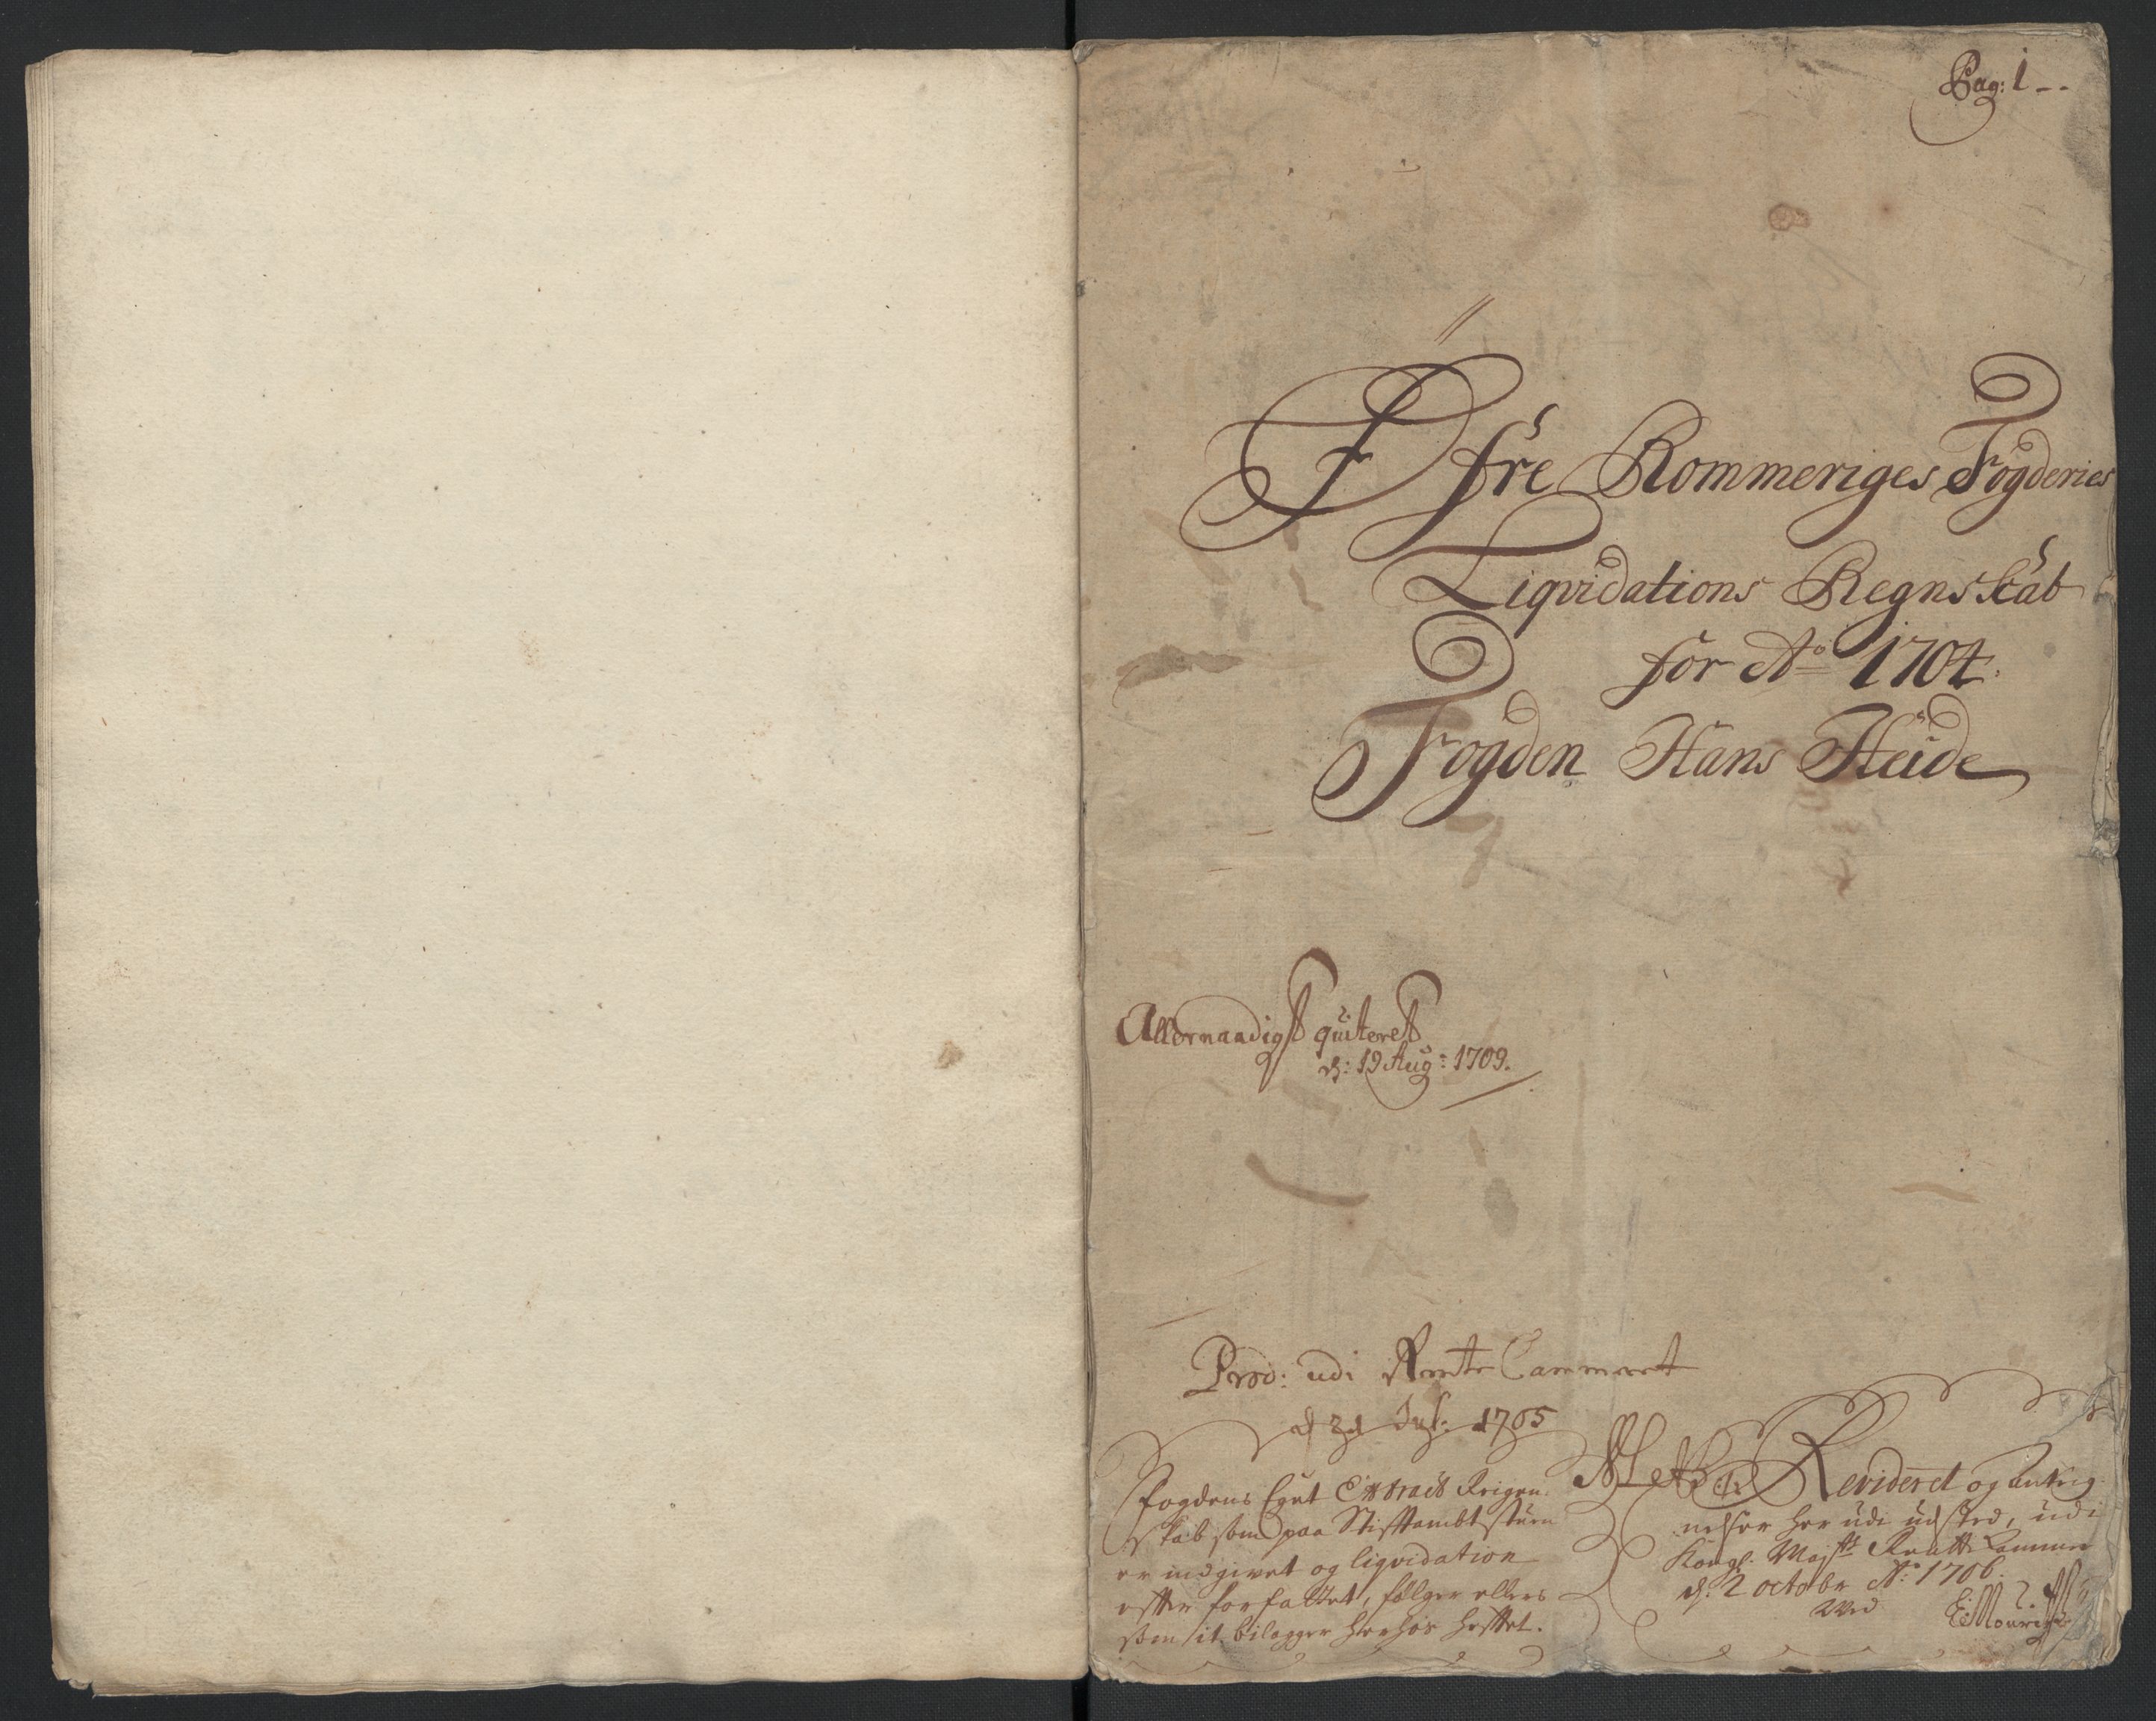 Pag: 1 --
Øfre Rommeriges Fogderies
Liqvidations Regnskab
for Ao 1704.
Fogden Hans Heide
Allernaadigst quiteret
d: 19 Aug: 1709.
Prod: udi Rente Cammeret
d 21 Jul: 1705
Fogdens Eget Extract Reigen-
skab som paa Stifftambtstuen
er indgivet og liqvidation
efter forfattet, følger ellers
som it bilagger herhos hefftet.
Revideret og Anteg-
nelser her udi udsted, udi
Kongl. Mayts Rentte Kammer
d. 2 octobr Ao 1706.
Ved